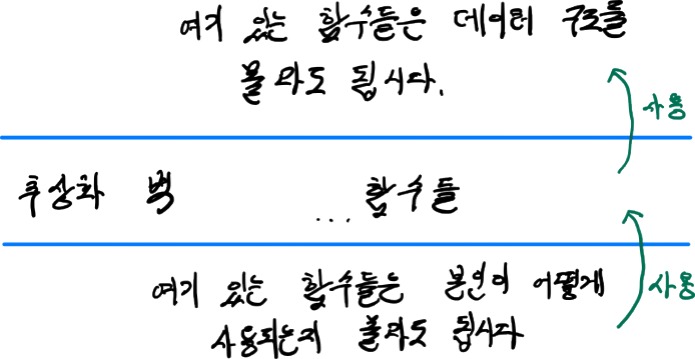 여기 있는 함수들은 데이터 구조를
몰라도 됩니다.
사용
추상화 벽 ... 함수들
여기 있는 함수들은 본인이 어떻게
사용되는지 몰라도 됩니다
사용